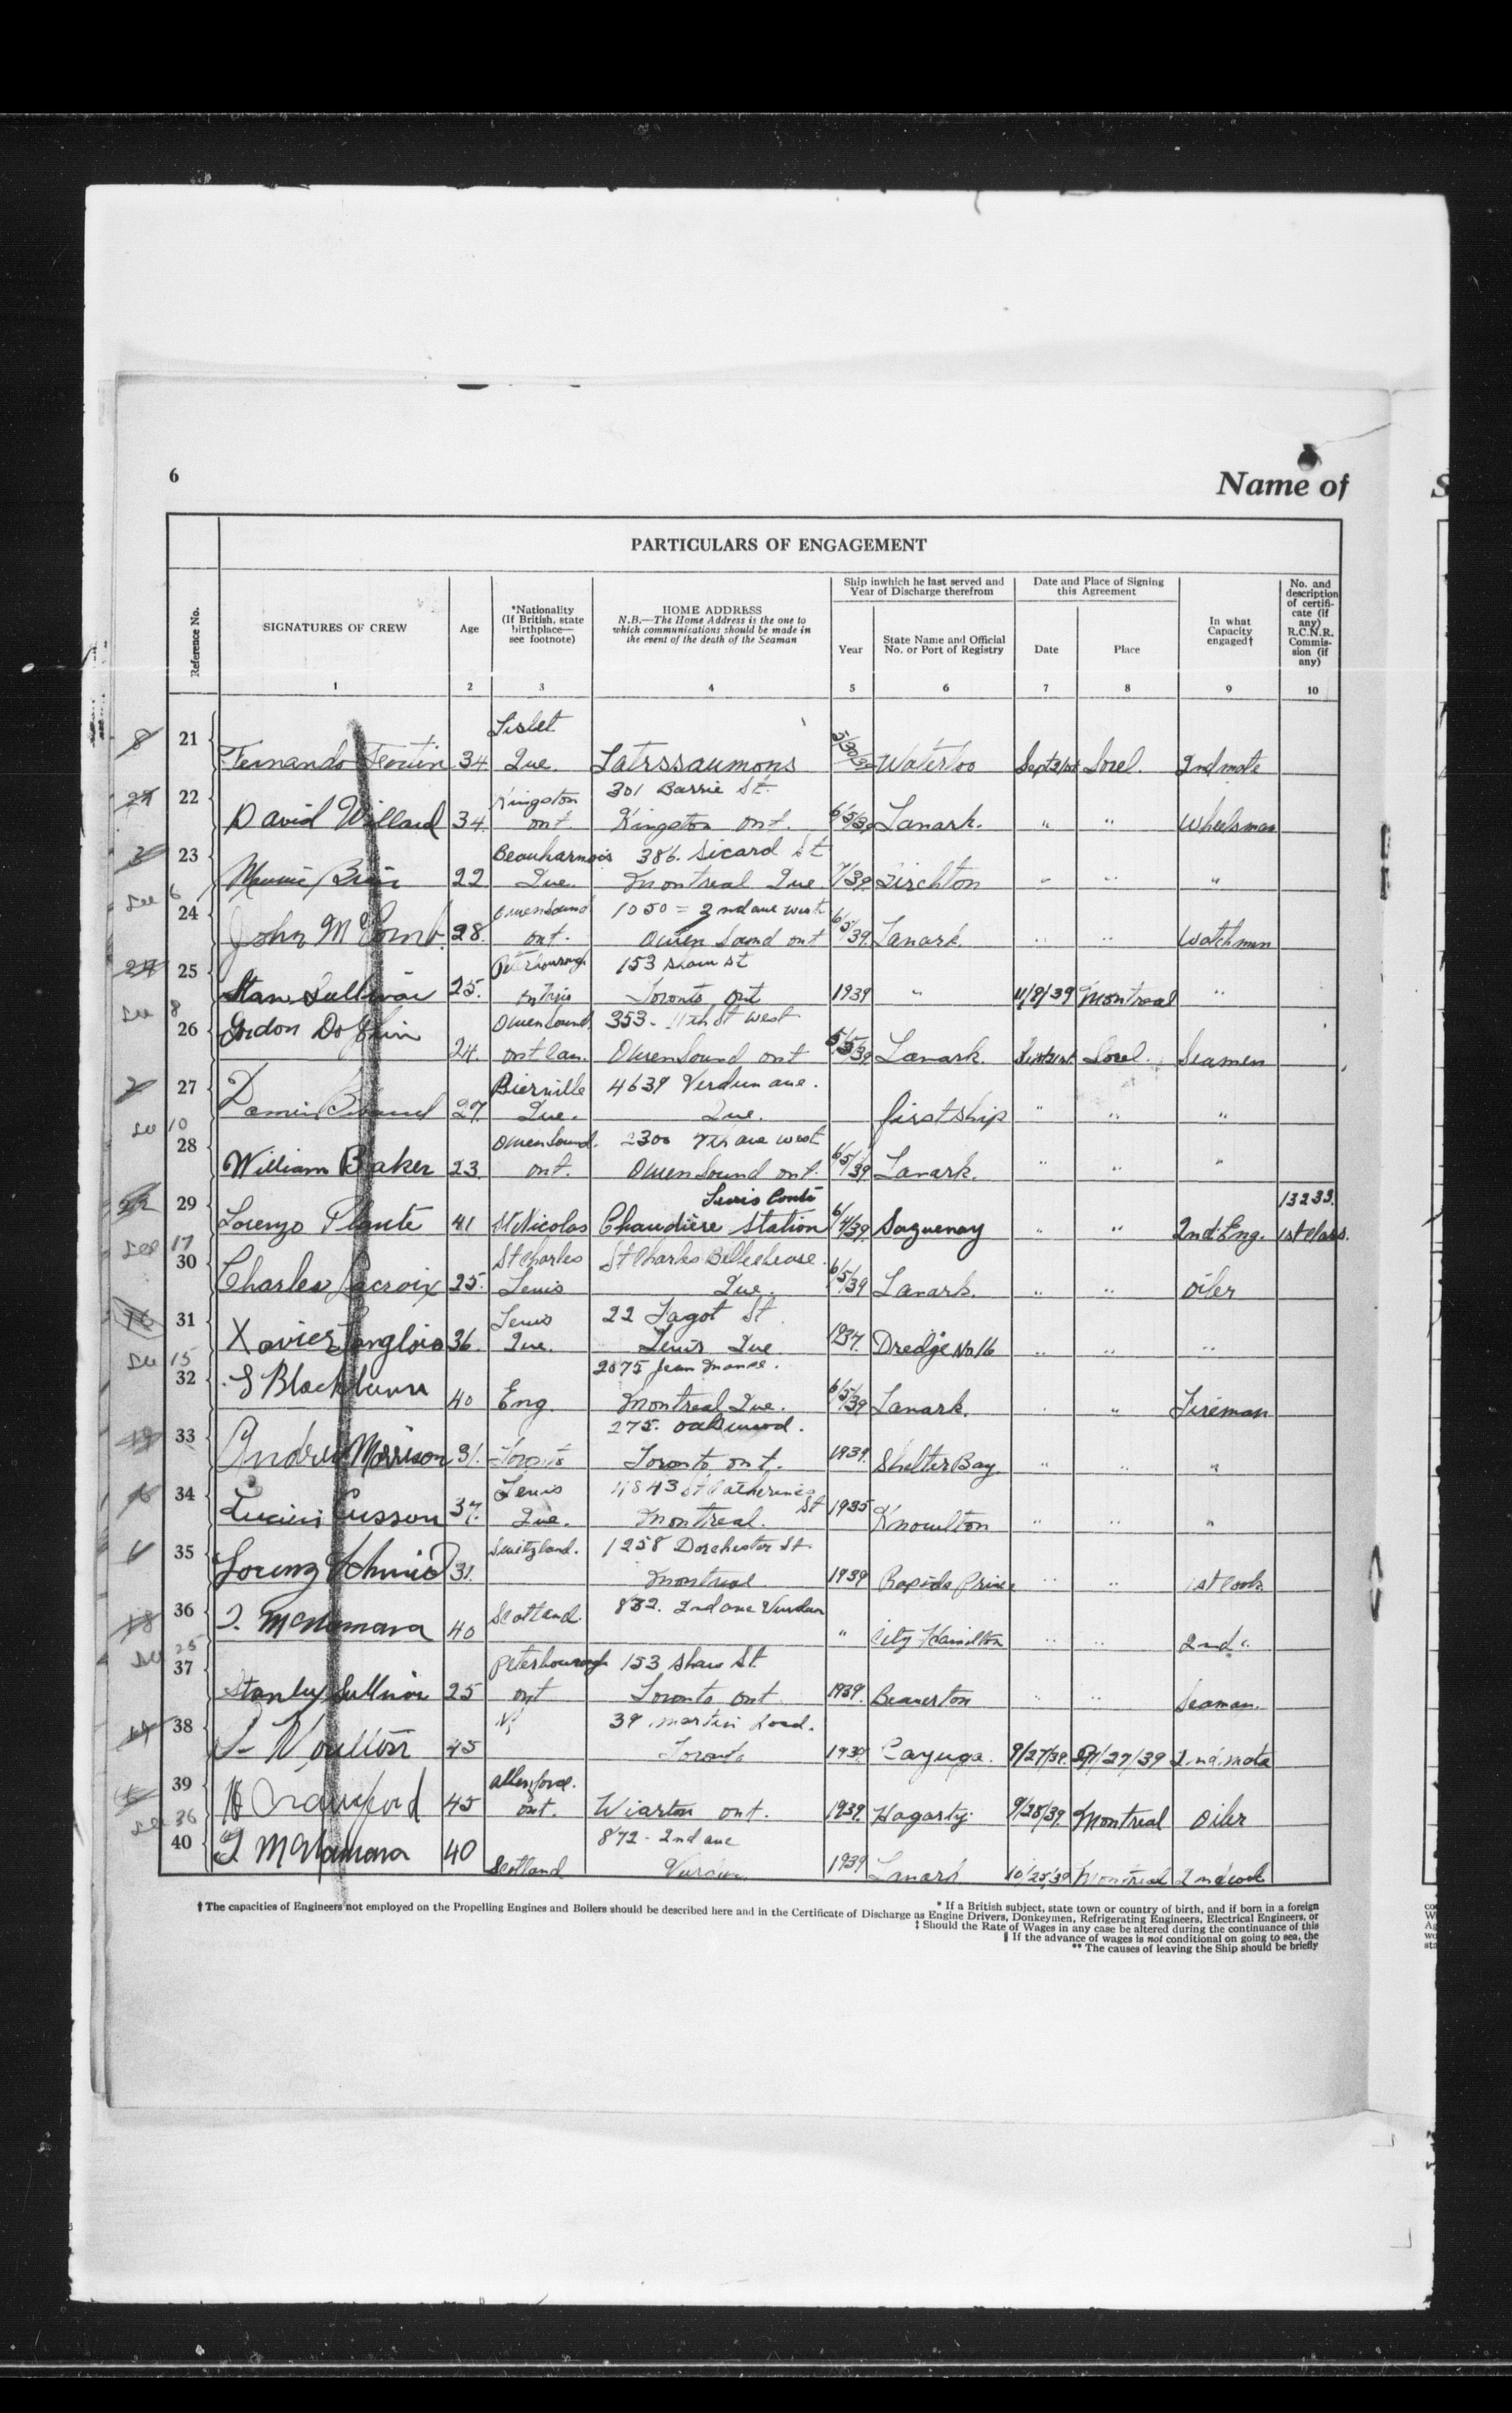 6
Name of
PARTICULARS OF ENGAGEMENT
Reference No.
SIGNATURES OF CREW
Age
*Nationality
(If British, state
birthplace—
see footnote)
HOME ADDRESS
N.B.—The Home Address is the one to
which communications should be made in
the event of the death of the Seaman
Ship inwhich he last served and
Year of Discharge therefrom
Year
State Name and Official
No. or Port of Registry
Date and Place of Signing
this Agreement
Date
Place
In what
Capacity
engaged†
No. and
description
of certifi-
cate (if
any)
R.C.N.R.
Commis-
sion (if
any)
1 2 3 4 5 6 7 8 9 10
8
21 Fernando 34 Lislet
Que. Latrssaumons Waterloo Sorel. 2nd mate
22 David Willard 34 Kingston 301 Barrie St.
ont. Kingston ont. Lanark. " " Wheelsman
23 22 Beauharnois 386. Sicard St
Que. Montreal Que. 7/39 " " "
see 6
24 John 28. Owen Sound 1050 = 2nd ave west
ont. Owen Sound ont 6/5/39 Lanark " " Watchman
25 Stan Sullivan 25. Peterborough 153 Shaw St
Toronto ont 1939 " 11/8/39 Montreal "
see 8
26 Gordon 24. Owen Sound 353 - 11th St west
ont can. Owen Sound ont Lanark. Sorel. Seamen
27 27. Bierville 4639 Verdun ave.
Que. Que. first ship " " "
see 10
28 William Baker 23. Owen Sound. 2300 7th ave west
ont. Owen Sound ont. 6/5/39 Lanark. " " "
29 Lorenzo Plante 41 St Nicolas Levis Conté
Chaudière Station 6/4/39 Saguenay " " 2nd Eng. 13233.
1st class.
see 17
30 Charles Lacroix 25. St Charles St Charles Bellechasse.
Levis Que. 6/5/39 Lanark. " " Oiler
31 Xavier Langlois 36. Levis 22 Fagot St
Que. Levis Que 1937. Dredge No. 16 " " "
see 15
32 S Blackburn 40 Eng 2075 Jean
Montreal Que. 6/5/39 Lanark. " " Fireman
33 Andrew Morrison 31. Toronto 275. Oakwood.
Toronto ont. 1939. Shelter Bay " " "
34 Cusson 37. Levis St Catherines
Que. Montreal. St 1935 Knowlton " " "
35 Lorenz Schmid 31. Switzland. 1258 Dorchester St
Montreal 1939 Rapids Prince " " 1st cook
36 McNamara 40 Scotland. 832. 2nd ave Verdun
" City Hamilton " " 2nd "
see 25
37 Stanley Sullivan 25 Peterbourough 153 Shaw St.
ont Toronto ont 1939. Beaverton " " Seaman.
38 45 39 Martin
Toronto 1939. Cayuga. 9/27/39. 9/27/39 2nd mate
39 H Crawford 45 Allenford.
ont. Wiarton ont. 1939. Hagarty 9/28/39. Montreal Oiler
see 36
40 McNamara 40 872 - 2nd ave
Scotland Verdun 1939 Lanark 10/25/39 Montreal 2nd cook
† The capacities of Engineers not employed on the Propelling Engines and Boilers should be described here and in the Certificate of Discharge as Engine Drivers, Donkeymen, Refrigerating Engineers, Electrical Engineers, or
* If a British subject, state town or country of birth, and if born in a foreign
‡ Should the Rate of Wages in any case be altered during the continuance of this
§ If the advance of wages is not conditional on going to sea, the
** The causes of leaving the Ship should be briefly